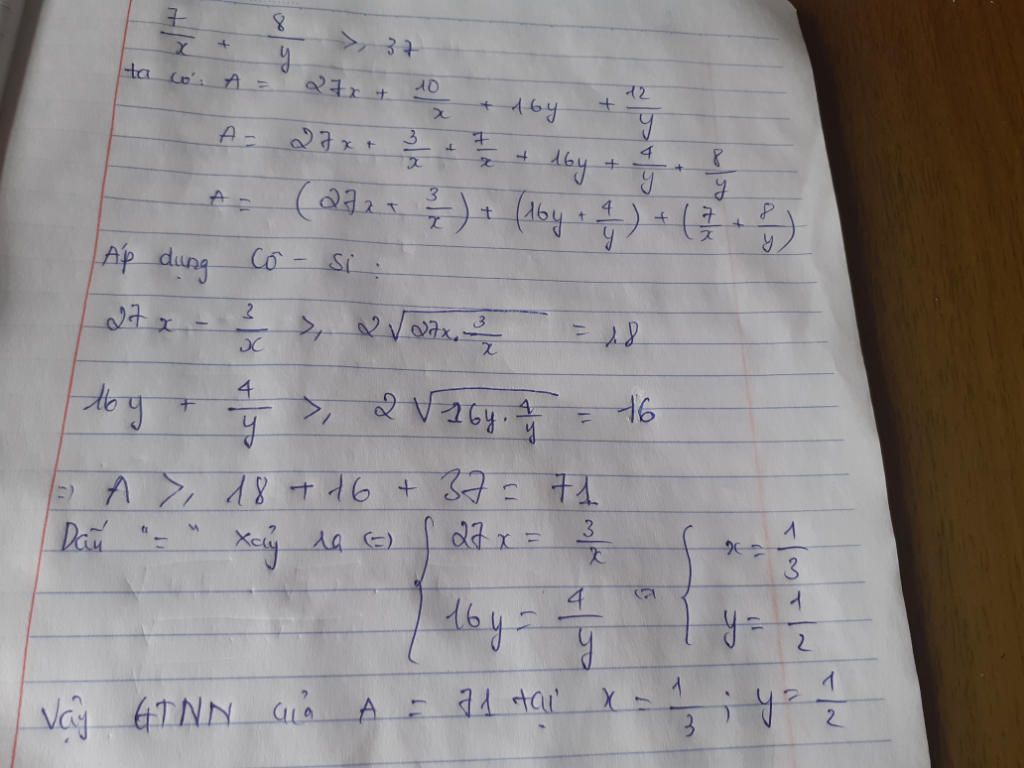 7/x + 8/y ≥ 37
ta có: A = 27x + 10/x + 16y + 12/y
A = 27x + 3/x + 7/x + 16y + 4/y + 8/y
A = (27x + 3/x) + (16y + 4/y) + (7/x + 8/y)
Áp dụng Cô - Si :
27x - 3/x ≥ 2√(27x.3/x) = 18
16y + 4/y ≥ 2√(16y.4/y) = 16
=> A ≥ 18 + 16 + 37 = 71
Dấu "=" xảy ra (=) { 27x = 3/x ; 16y = 4/y (=) { x = 1/3 ; y = 1/2
Vậy GTNN của A = 71 tại x = 1/3 ; y = 1/2